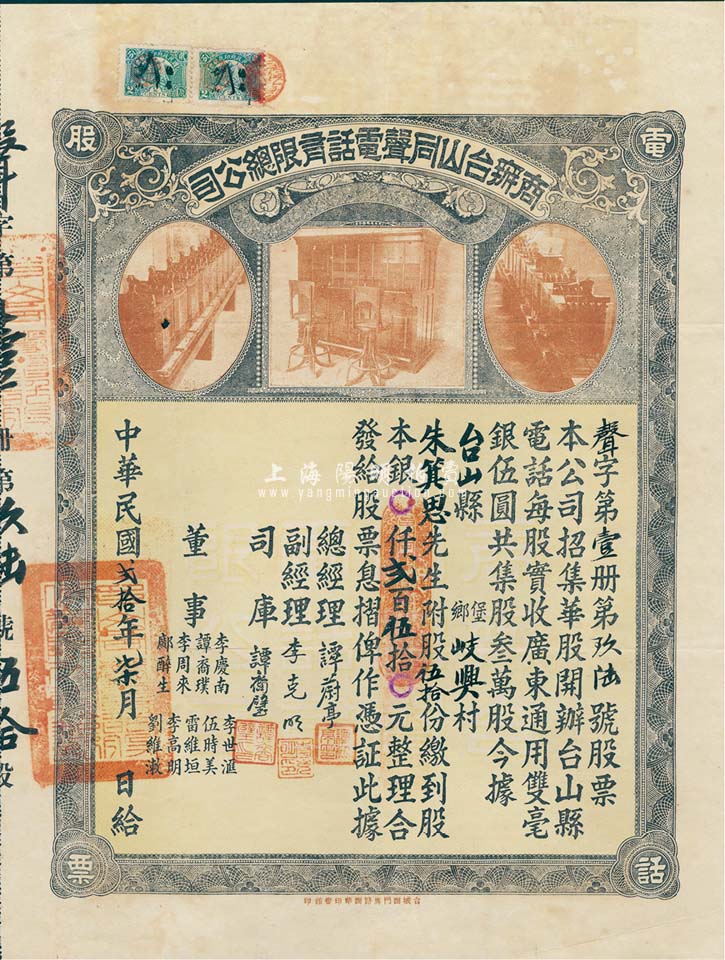 電
話
股
票
商辦台山同聲電話有限總公司
聲字第壹册第玖陆號股票
本公司招集華股開辦台山縣
電話每股實收廣東通用雙毫
銀伍圓共集股叁萬股今據
台山縣鄉堡岐興村
朱箕恩先生附股伍拾份繳到股
本銀〇仟弍百伍拾〇元整理合
發給股票息摺俾作憑証此據
總經理 譚蔚亭
副經理 李克明
司庫
董事
李慶南
譚裔璞
李周來
鄺醉生
李世滙
伍時美
雷維垣
李高明
劉維漖
中華民國弍拾年柒月 日給
聲字第壹册第玖陆號伍拾股
上海陽明拍賣
www.yangmingauction.com